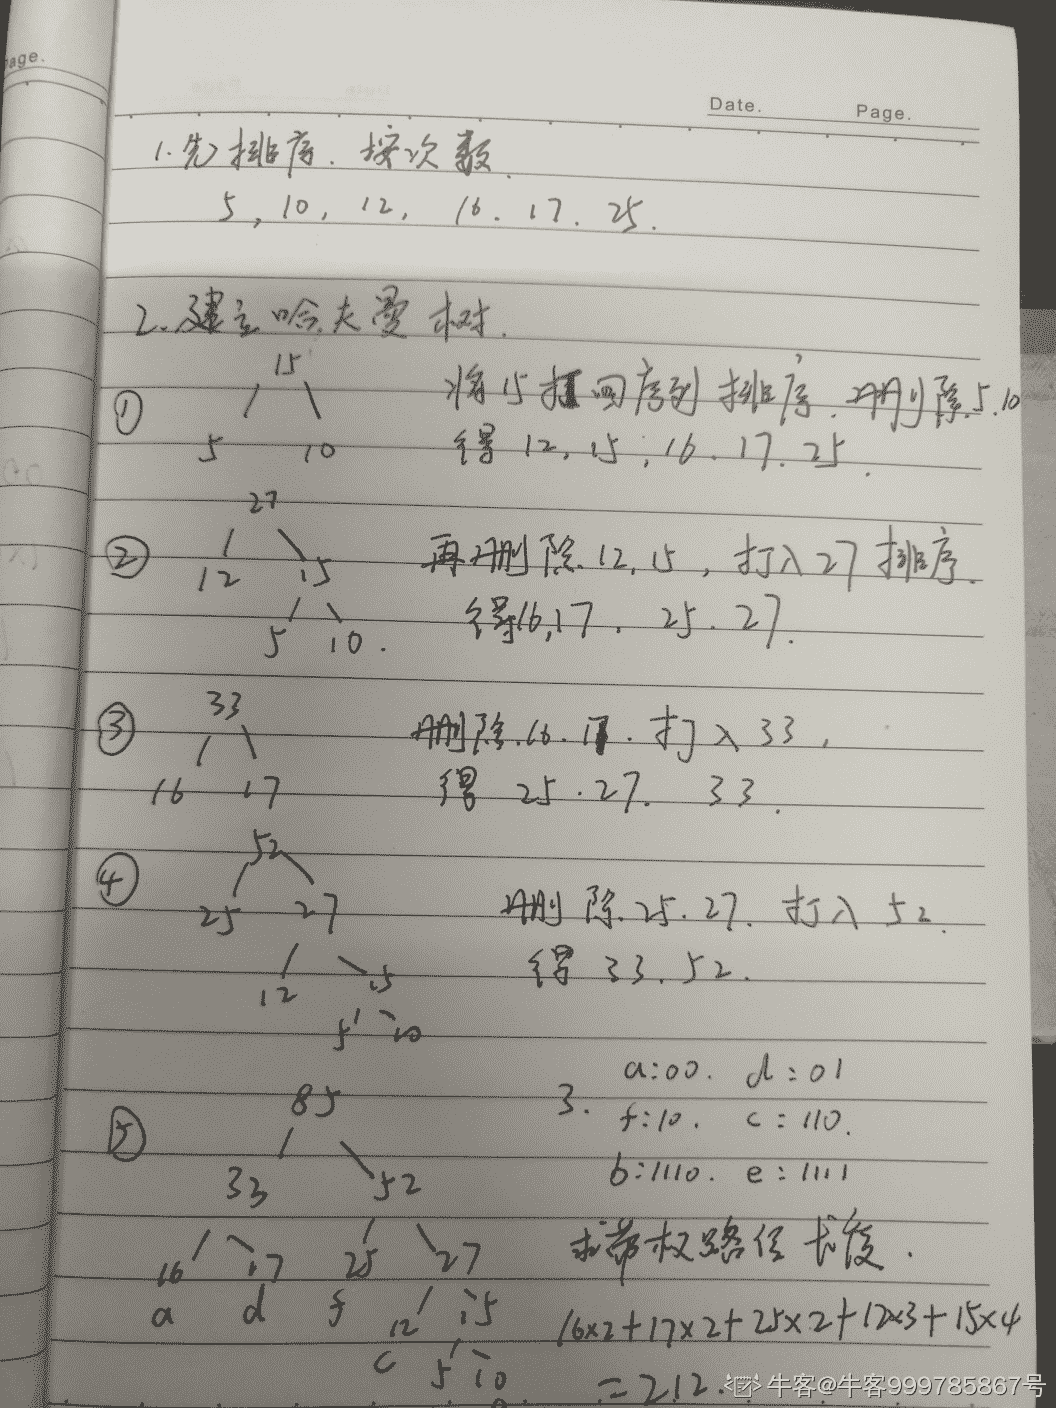 Page.
Date. Page.
1.先排序.按次数.
5, 10, 12, 16. 17. 25.
2.建立哈夫曼树.
① 15
5 10
将15打回序列排序.删除.5.10
得12,15,16.17.25.
② 27
12 15
5 10.
再删除.12,15,打入27排序.
得16,17. 25.27.
③ 33
16 17
删除.16.17.打入33,
得 25.27. 33.
④ 52
25 27
12 15
5 10
删除.25.27.打入52.
得33.52.
⑤ 85
33 52
16 17 25 27
a d f 12 15
c 5 10
3. a:00. d:01
f:10. c:110.
b:1110. e:1111
求带权路径长度.
16×2+17×2+25×2+12×3+15×4
=212.
牛客@牛客999785867号